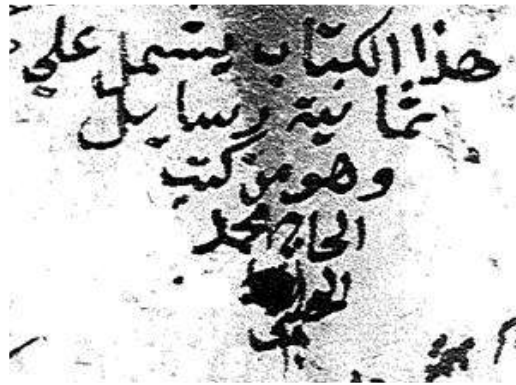 هذا الكتاب يشتمل علي
ثمانية رسايل
وهو من كتب
الحاج محمد